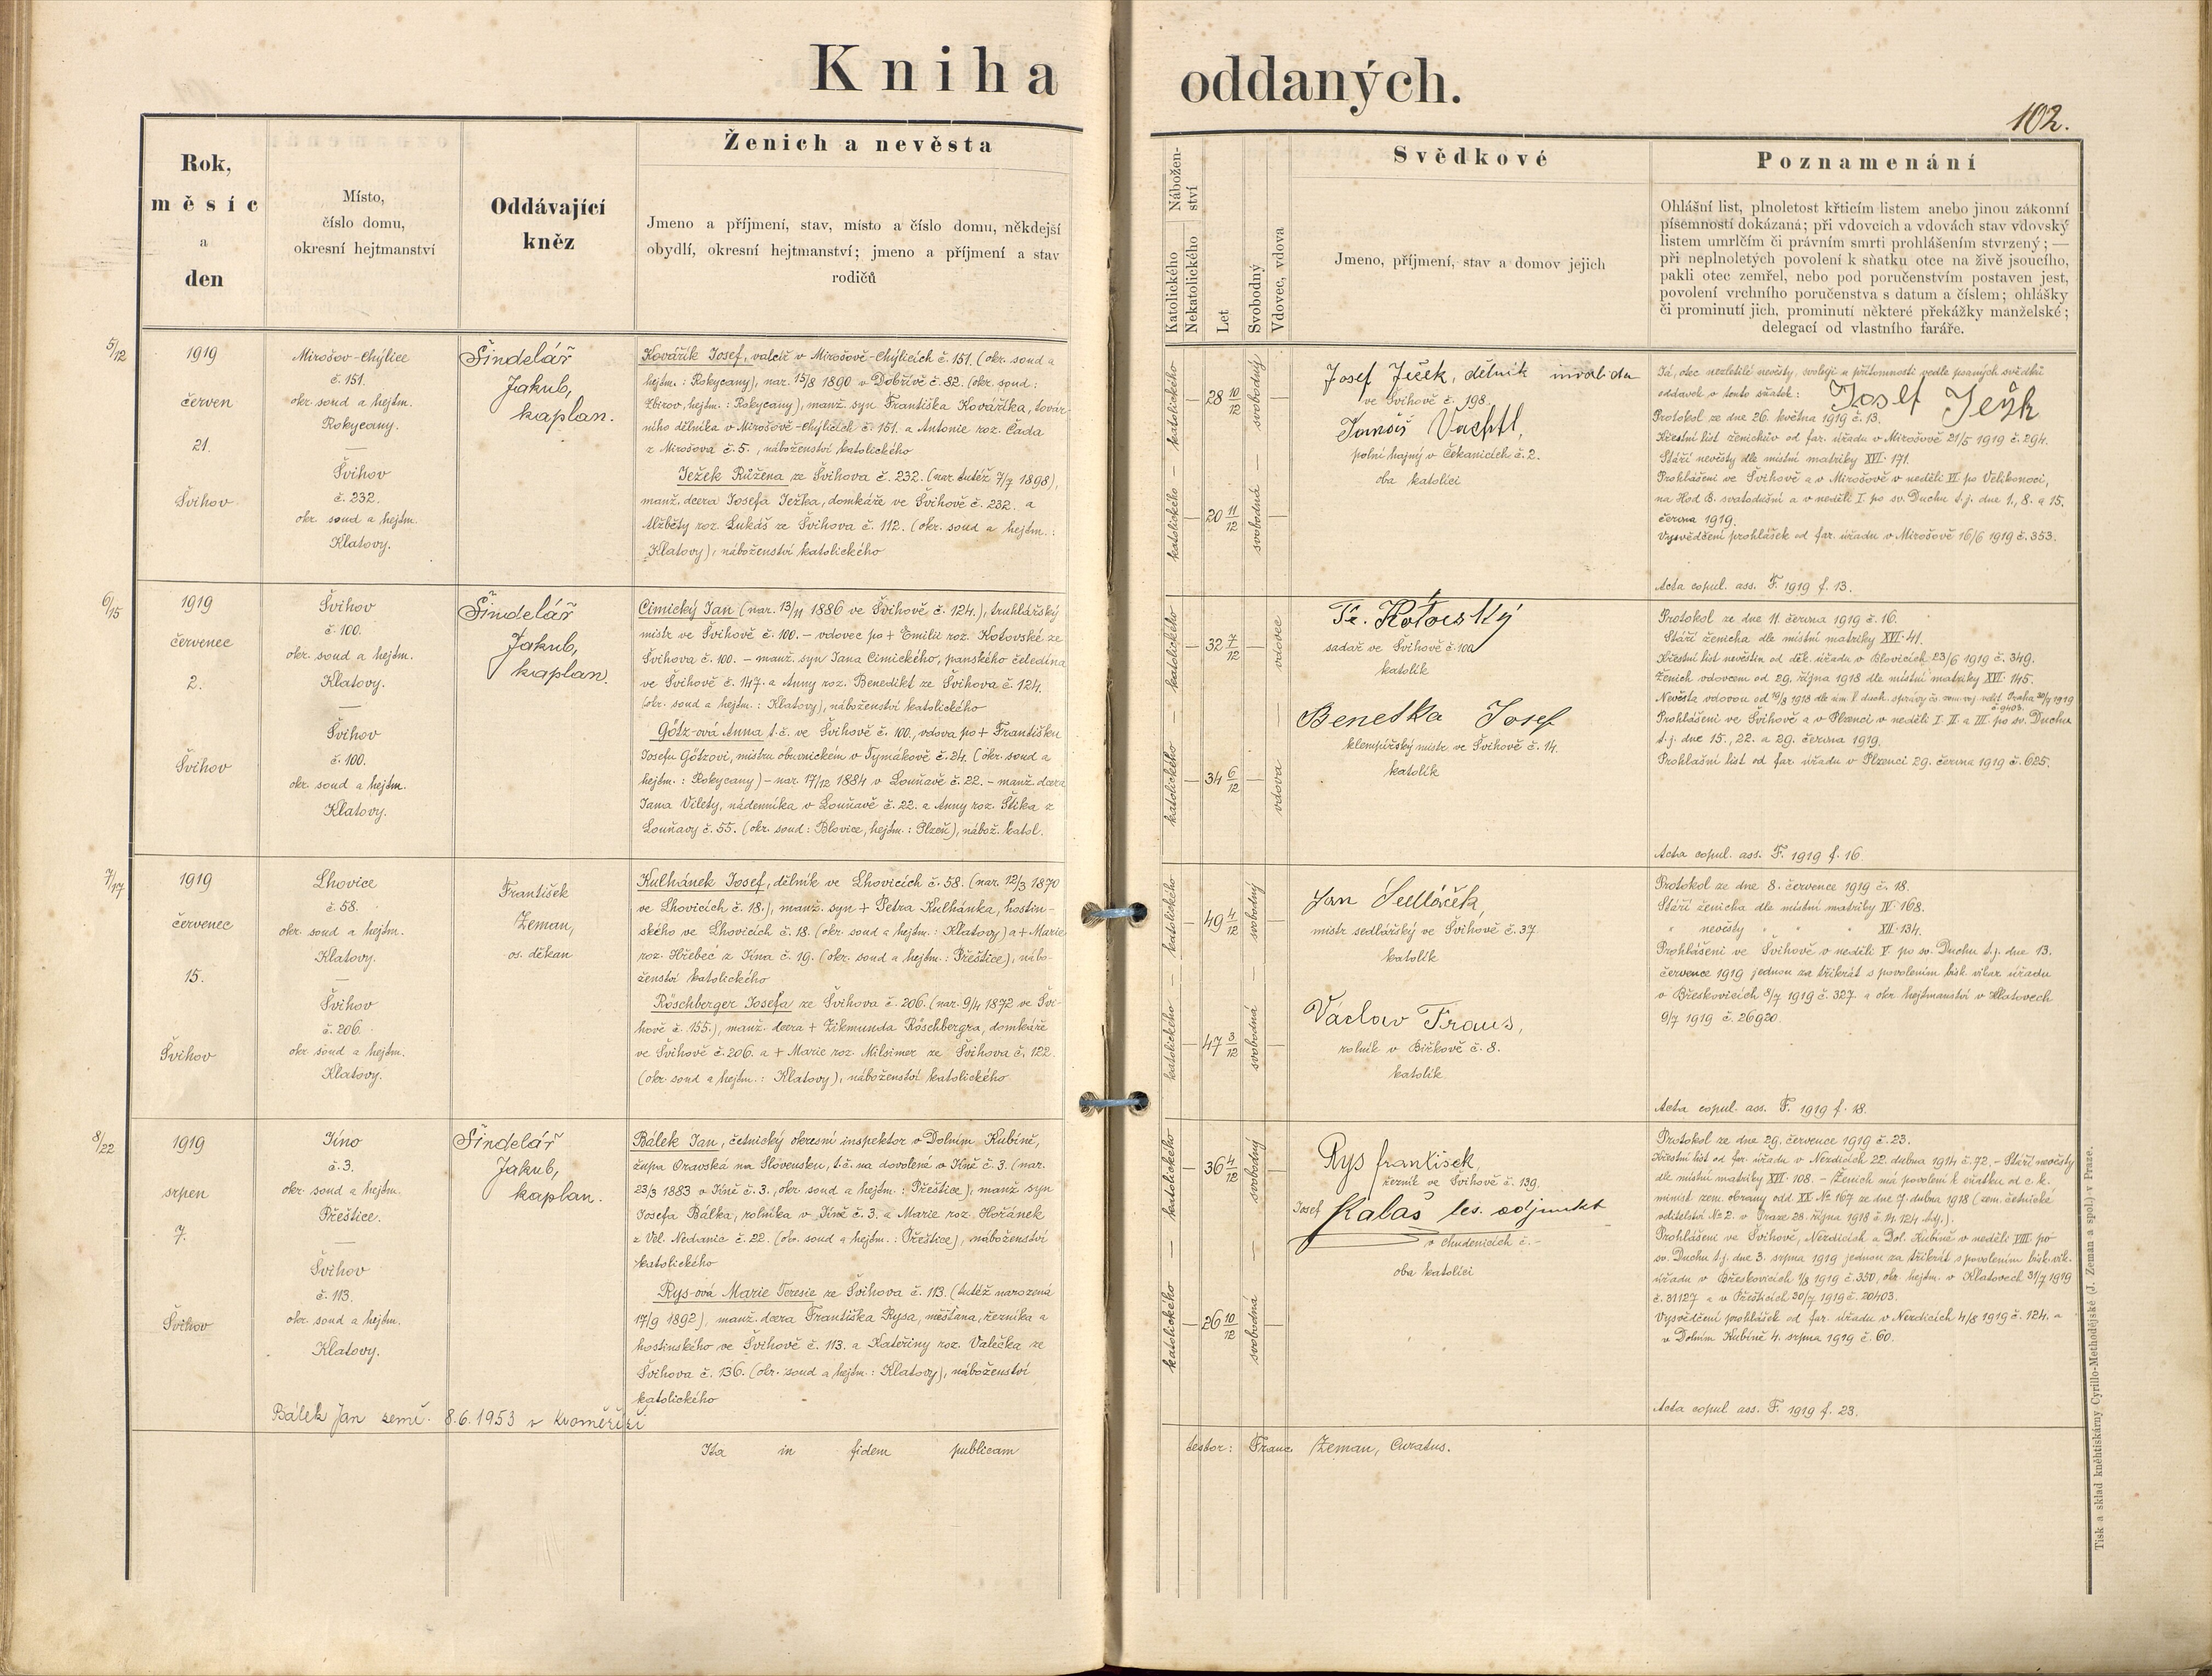 Kniha
oddaných.
102.
Rok,
měsíc
a
den
Místo,
číslo domu,
okresní hejtmanství
Oddávající
kněz
Ženich a nevěsta
Jmeno a příjmení, stav, místo a číslo domu, někdejší
obydlí, okresní hejtmanství; jmeno a příjmení a stav
rodičů
Nábožen-
ství
Katolického
Nekatolického
Let
Svobodný
Vdovec, vdova
Svědkové
Jmeno, příjmení, stav a domov jejich
Poznamenání
Ohlášní list, plnoletost křticím listem anebo jinou zákonní
písemností dokázaná; při vdovcích a vdovách stav vdovský
listem umrlčím či právním smrti prohlášením stvrzený; —
při neplnoletých povolení k sňatku otce na živě jsoucího,
pakli otec zemřel, nebo pod poručenstvím postaven jest,
povolení vrchního poručenstva s datum a číslem; ohlášky
či prominutí jich, prominutí některé překážky manželské;
delegací od vlastního faráře.
5/12
1919
červen
21.
Švihov
Mirošov-Chýlice
č. 151.
okr. soud a hejtm.
Rokycany.
—
Švihov
č. 232.
okr. soud a hejtm.
Klatovy.
Šindelář
Jakub,
kaplan.
Kovářík Josef, valcíř v Mirošově-Chýlicích č. 151. (okr. soud a
hejtm.: Rokycany), nar. 15/8 1890 v Dobřívě č. 82. (okr. soud:
Zbirov, hejtm.: Rokycany), manž. syn Františka Kováříka, továr-
ního dělníka v Mirošově-Chýlicích č. 151. a Antonie roz. Čada
z Mirošova č. 5., náboženství katolického
Ježek Růžena ze Švihova č. 232. (nar. tutéž 7/7 1898),
manž. dcera Josefa Ježka, domkáře ve Švihově č. 232. a
Alžběty roz. Lukáš ze Švihova č. 112. (okr. soud a hejtm.:
Klatovy), náboženství katolického
katolického — katolického
28 10/12
20 11/12
svobodný
svobodná
Josef Ježek, dělník invalidu
ve Švihově č. 198.
Vachtl,
polní hajný v Čekanicích č. 2.
oba katolíci
Já, otec nezletilé nevěsty, svoluji v přítomnosti vedle psaných svědků
oddavek v tento sňatek: Josef Ježk
Protokol ze dne 26. května 1919 č. 13.
Křestní list ženichův od far. úřadu v Mirošově 21/5 1919 č. 294.
Stáří nevěsty dle místní matriky XVI. 171.
Prohlášeni ve Švihově a v Mirošově v neděli VI. po Velikonoci,
na Hod B. svatodušní a v neděli I. po sv. Duchu t. j. dne 1., 8. a 15.
června 1919.
Vysvědčení prohlášek od far. úřadu v Mirošově 16/6 1919 č. 353.
Acta copul. ass. F. 1919 f. 13.
6/15
1919
červenec
2.
Švihov
Švihov
č. 100.
okr. soud a hejtm.
Klatovy.
—
Švihov
č. 100.
okr. soud a hejtm.
Klatovy.
Šindelář
Jakub,
kaplan.
Cimický Jan (nar. 13/11 1886 ve Švihově č. 124.), truhlářský
mistr ve Švihově č. 100. – vdovec po + Emilii roz. Kotovské ze
Švihova č. 100. – manž. syn Jana Cimického, panského čeledína
ve Švihově č. 147. a Anny roz. Benedikt ze Švihova č. 124.
(okr. soud a hejtm.: Klatovy), náboženství katolického
Götz-ová Anna t. č. ve Švihově č. 100, vdova po + Františku
Josefu Götzovi, mistru obuvnickém v Tymákově č. 24. (okr. soud a
hejtm.: Rokycany) – nar. 17/12 1884 v Louňavě č. 22. – manž. dcera
Jana Vilety, nádenníka v Louňavě č. 22. a Anny roz. Štika z
Louňavy č. 55. (okr. soud: Blovice, hejtm.: Plzeň), nábož. katol.
katolického — katolického
32 7/12
34 6/12
vdovec
vdova
Fr. Kotovský
sadař ve Švihově č. 100
katolík
Benetka Josef
klempířský mistr ve Švihově č. 14.
katolík
Protokol ze dne 11. června 1919 č. 16.
Stáří ženicha dle místní matriky XVI. 41.
Křestní list nevěstin od děk. úřadu v Blovicích 23/6 1919 č. 349.
Ženich vdovcem od 29. října 1918 dle místní matriky XVI. 145.
Prohlášeni ve Švihově a v Plzenci v neděli I. II. a III. po sv. Duchu
t. j. dne 15., 22. a 29. června 1919.
Prohlašní list od far. úřadu v Plzenci 29. června 1919 č. 625.
Acta copul. ass. F. 1919 f. 16.
7/17
1919
červenec
15.
Švihov
Lhovice
č. 58.
okr. soud a hejtm.
Klatovy.
—
Švihov
č. 206.
okr. soud a hejtm.
Klatovy.
František
Zeman,
os. děkan
Kulhánek Josef, dělník ve Lhovicích č. 58. (nar. 12/3 1870
ve Lhovicích č. 18.), manž. syn + Petra Kulhánka, hostin-
ského ve Lhovicích č. 18. (okr. soud a hejtm.: Klatovy) a + Marie
roz. Hřebec z Jína č. 19. (okr. soud a hejtm.: Přeštice), nábo-
ženství katolického
Röschberger Josefa ze Švihova č. 206. (nar. 9/4 1872 ve Švi-
hově č. 155.), manž. dcera + Zikmunda Röschbergra, domkáře
ve Švihově č. 206. a + Marie roz. Milsimer ze Švihova č. 122.
(okr. soud a hejtm.: Klatovy), náboženství katolického
katolického — katolického
49 4/12
47 3/12
svobodný
svobodná
Jan Sedláček,
mistr sedlářský ve Švihově č. 37
katolík
Václav Fraus,
rolník v Bižkově č. 8.
katolík
Protokol ze dne 8. července 1919 č. 18.
Stáří ženicha dle místní matriky IV. 168.
" nevěsty " " " XII. 134.
Prohlášeni ve Švihově v neděli V. po sv. Duchu t. j. dne 13.
července 1919 jednou za třikrát s povolením bisk. vikar. úřadu
v Břeskovicích 8/7 1919 č. 327. a okr. hejtmanství v Klatovech
9/7 1919 č. 26920.
Acta copul. ass. F. 1919 f. 18.
8/22
1919
srpen
7.
Švihov
Jíno
č. 3.
okr. soud a hejtm.
Přeštice.
—
Švihov
č. 113.
okr. soud a hejtm.
Klatovy.
Šindelář
Jakub,
kaplan.
Bálek Jan, četnický okresní inspektor v Dolním Kubíně,
župa Oravská na Slovensku, t. č. na dovolené v Jíně č. 3. (nar.
23/3 1883 v Jíně č. 3., okr. soud a hejtm.: Přeštice), manž. syn
Josefa Bálka, rolníka v Jíně č. 3. a Marie roz. Hořánek
z Vel. Nedanic č. 22. (okr. soud a hejtm.: Přeštice), náboženství
katolického
Rys-ová Marie Teresie ze Švihova č. 113. (tutéž narozená
17/9 1892), manž. dcera Františka Rysa, měšťana, řezníka a
hostinského ve Švihově č. 113. a Kateřiny roz. Valečka ze
Švihova č. 136. (okr. soud a hejtm.: Klatovy), náboženství
katolického
Bálek Jan zemř. 8. 6. 1953 v Kroměříži
katolického — katolického
36 4/12
26 10/12
svobodný
svobodná
Rys František,
řezník ve Švihově č. 139.
Josef Kalaš les. adjunkt
v Chudenicích č. –
oba katolíci
Protokol ze dne 29. července 1919 č. 23.
Křestní list od far. úřadu v Nezdicích 22. dubna 1914 č. 72. – Stáří nevěsty
dle místní matriky XVI. 108. – Ženich má povolení k sňatku od c. k.
minist. zem. obrany odd. XX. № 167 ze dne 7. dubna 1918 (zem. četnické
velitelství № 2. v Praze 28. října 1918 č. 14. 124 Adj.).
Prohlášeni ve Švihově, Nezdicích a Dol. Kubíně v neděli VIII. po
sv. Duchu t. j. dne 3. srpna 1919 jednou za třikrát s povolením bisk. vik.
úřadu v Břeskovicích 1/8 1919 č. 350, okr. hejtm. v Klatovech 31/7 1919
č. 31127 a v Přešticích 30/7 1919 č. 20403.
Vysvědčení prohlášek od far. úřadu v Nezdicích 4/8 1919 č. 124. a
v Dolním Kubíně 4. srpna 1919 č. 60.
Acta copul. ass. F. 1919 f. 23.
Ita in fidem publicam
testor: Franc. Zeman, Curatus.
Tisk a sklad kněhtiskárny Cyrillo-Methodějské (J. Zeman a spol.) v Praze.